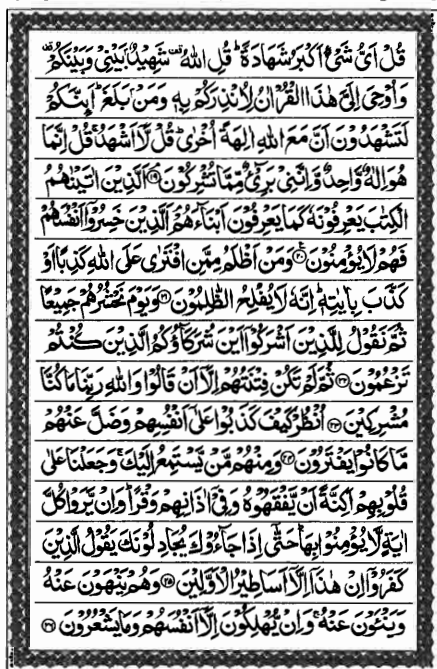 قُلْ اَیُّ شَیْءٍ اَكْبَرُ شَهَادَةً ؕ قُلِ اللّٰهُ ۫ۙ شَهِیْدٌۢ بَیْنِیْ وَبَیْنَكُمْ ۫
وَاُوْحِیَ اِلَیَّ هٰذَا الْقُرْاٰنُ لِاُنْذِرَكُمْ بِهٖ وَمَنْۢ بَلَغَ ؕ اَىِٕنَّكُمْ
لَتَشْهَدُوْنَ اَنَّ مَعَ اللّٰهِ اٰلِهَةً اُخْرٰی ؕ قُلْ لَّاۤ اَشْهَدُ ۚ قُلْ اِنَّمَا
هُوَ اِلٰهٌ وَّاحِدٌ وَّاِنَّنِیْ بَرِیْٓءٌ مِّمَّا تُشْرِكُوْنَ ۘ﴿۱۹﴾ اَلَّذِیْنَ اٰتَیْنٰهُمُ
الْكِتٰبَ یَعْرِفُوْنَهٗ كَمَا یَعْرِفُوْنَ اَبْنَآءَهُمْ ۘ اَلَّذِیْنَ خَسِرُوْۤا اَنْفُسَهُمْ
فَهُمْ لَا یُؤْمِنُوْنَ ﴿۲۰﴾ وَمَنْ اَظْلَمُ مِمَّنِ افْتَرٰی عَلَی اللّٰهِ كَذِبًا اَوْ
كَذَّبَ بِاٰیٰتِهٖ ؕ اِنَّهٗ لَا یُفْلِحُ الظّٰلِمُوْنَ ﴿۲۱﴾ وَیَوْمَ نَحْشُرُهُمْ جَمِیْعًا
ثُمَّ نَقُوْلُ لِلَّذِیْنَ اَشْرَكُوْۤا اَیْنَ شُرَكَآؤُكُمُ الَّذِیْنَ كُنْتُمْ
تَزْعُمُوْنَ ﴿۲۲﴾ ثُمَّ لَمْ تَكُنْ فِتْنَتُهُمْ اِلَّاۤ اَنْ قَالُوْا وَاللّٰهِ رَبِّنَا مَا كُنَّا
مُشْرِكِیْنَ ﴿۲۳﴾ اُنْظُرْ كَیْفَ كَذَبُوْا عَلٰۤی اَنْفُسِهِمْ وَضَلَّ عَنْهُمْ
مَّا كَانُوْا یَفْتَرُوْنَ ﴿۲۴﴾ وَمِنْهُمْ مَّنْ یَّسْتَمِعُ اِلَیْكَ ۚ وَجَعَلْنَا عَلٰی
قُلُوْبِهِمْ اَكِنَّةً اَنْ یَّفْقَهُوْهُ وَفِیْۤ اٰذَانِهِمْ وَقْرًا ؕ وَاِنْ یَّرَوْا كُلَّ
اٰیَةٍ لَّا یُؤْمِنُوْا بِهَا ؕ حَتّٰۤی اِذَا جَآءُوْكَ یُجَادِلُوْنَكَ یَقُوْلُ الَّذِیْنَ
كَفَرُوْۤا اِنْ هٰذَاۤ اِلَّاۤ اَسَاطِیْرُ الْاَوَّلِیْنَ ﴿۲۵﴾ وَهُمْ یَنْهَوْنَ عَنْهُ
وَیَنْئَوْنَ عَنْهُ ۚ وَاِنْ یُّهْلِكُوْنَ اِلَّاۤ اَنْفُسَهُمْ وَمَا یَشْعُرُوْنَ ﴿۲۶﴾